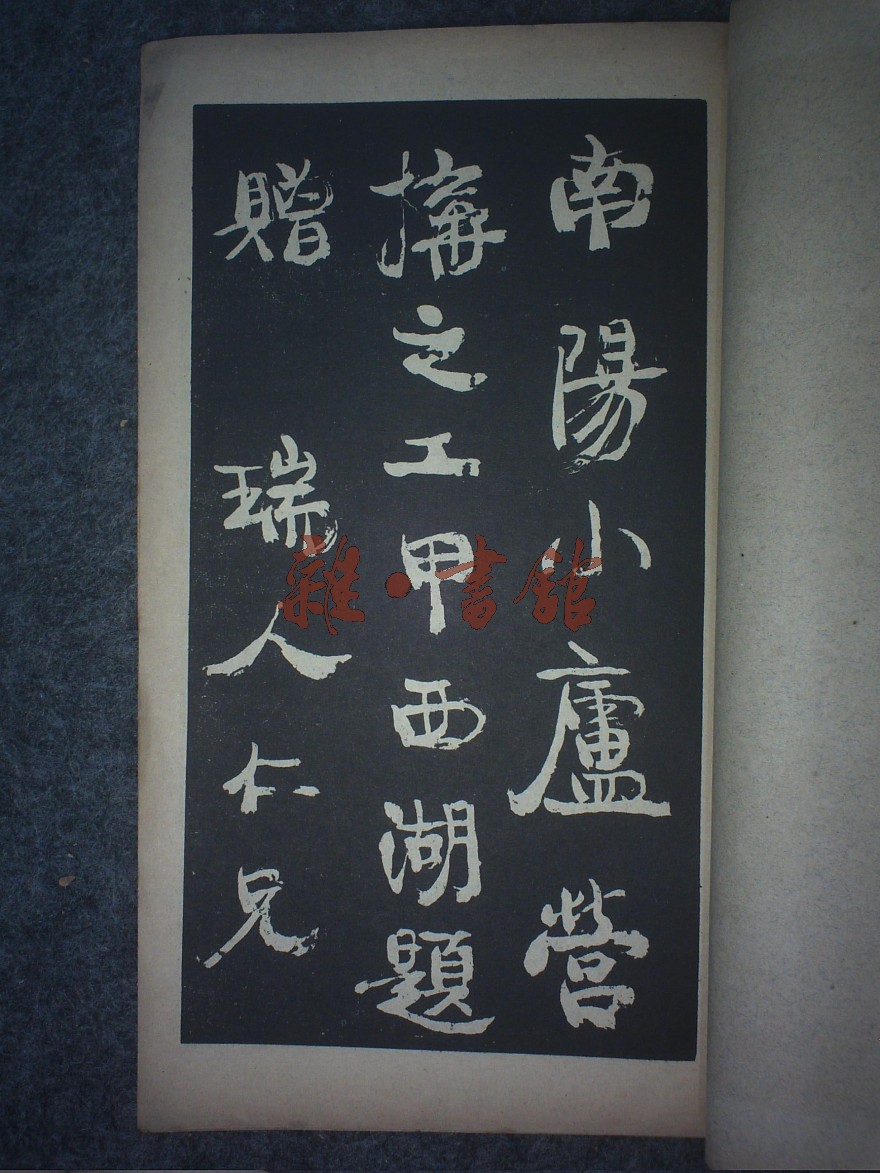 南陽小廬營
搆之工甲西湖題
贈 瑞人仁兄
雜·書館